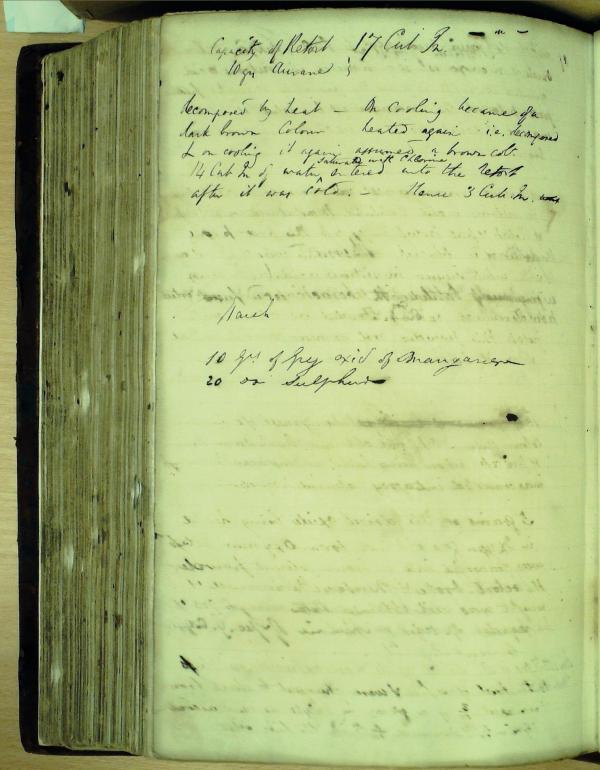 Capacity of Retort 17 Cub In.
10 grs Aurane
decomposed by heat – On cooling became of a
dark brown Colour heated again i.e. decomposed
& on cooling it again assumed a brown col.
saturated with Chlorine
14 Cub In of water entered into the retort
after it was cold. – Hence 3 Cub. In. was
March
10 Grs of Grey oxid of Manganese
20 do Sulphur